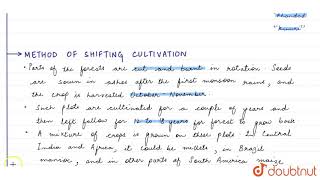 METHOD OF SHIFTING CULTIVATION
Parts of the forests are cut and burnt in rotation. Seeds
are sown in ashes after the first monsoon rains, and
the crop is harvested October-November.
Such plots are cultivated for a couple of years and
then left fallow for 12 to 18 years for forests to grow back
A mixture of crops is grown on these plots. In Central
India and Africa, it could be millets, in Brazil
manioc, and in other parts of South America maize
doubtnut